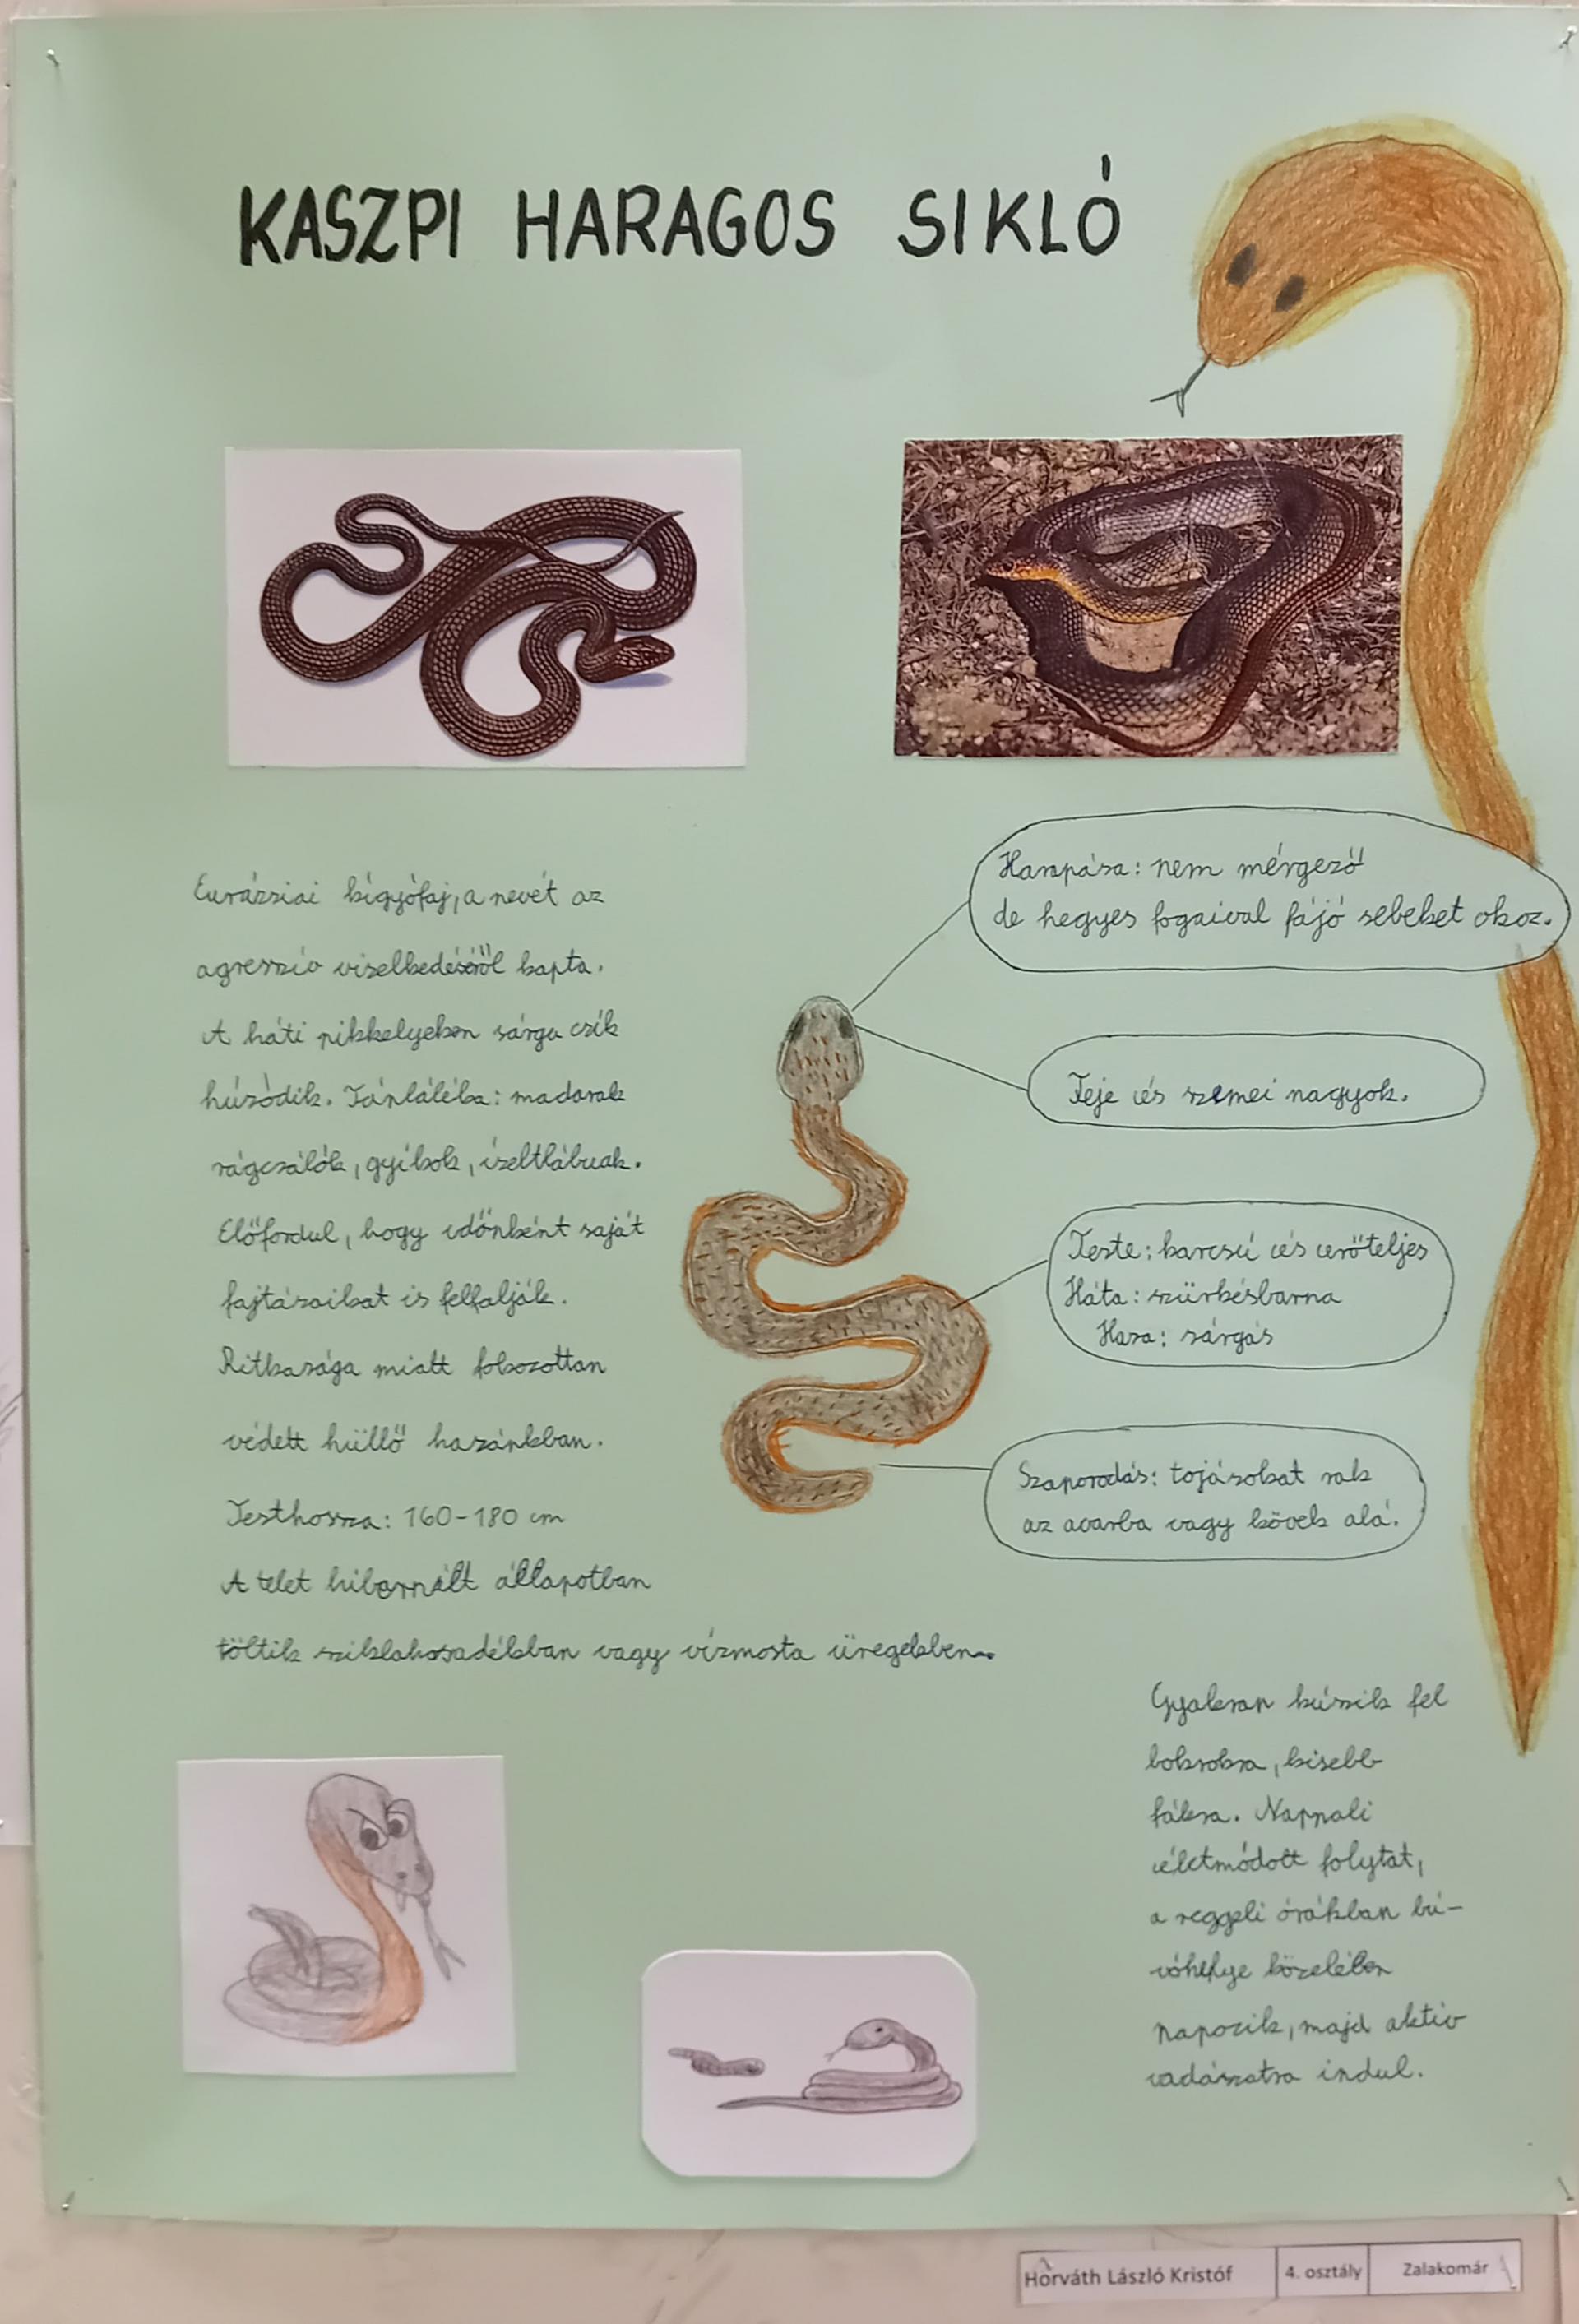 KASZPI HARAGOS SIKLÓ
Eurázsiai kígyófaj, a nevét az
agresszív viselkedéséről kapta.
A háti pikkelyeken sárga csík
húzódik. Tápláléka: madarak
rágcsálók, gyíkok, ízeltlábuak.
Előfordul, hogy időnként saját
fajtársaikat is felfalják.
Ritkasága miatt fokozottan
védett hüllő hazánkban.
Testhossza: 160-180 cm
A telet hibernált állapotban
töltik sziklahasadékban vagy vízmosta üregekben.
Harapása: nem mérgező
de hegyes fogaival fájó sebeket okoz.
Feje és szemei nagyok.
Teste: karcsú és erőteljes
Háta: szürkésbarna
Hasa: sárgás
Szaporodás: tojásokat rak
az avarba vagy kövek alá.
Gyakran kúszik fel
bokrokra, kisebb
fákra. Nappali
életmódott folytat,
a reggeli órákban bú-
vóhelye közelében
napozik, majd aktív
vadászatra indul.
Horváth László Kristóf 4. osztály Zalakomár